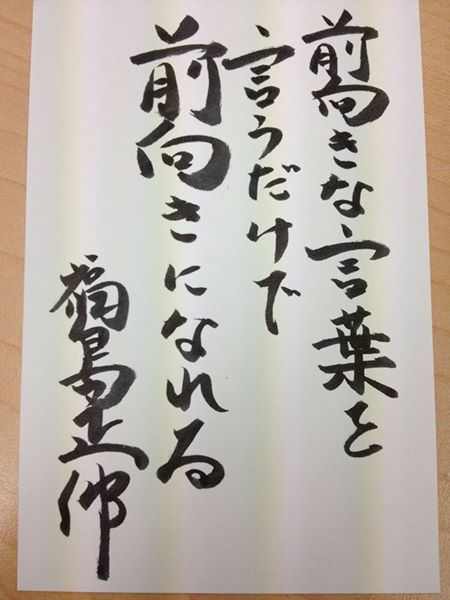 前向きな言葉を
言うだけで
前向きになれる
福島正伸